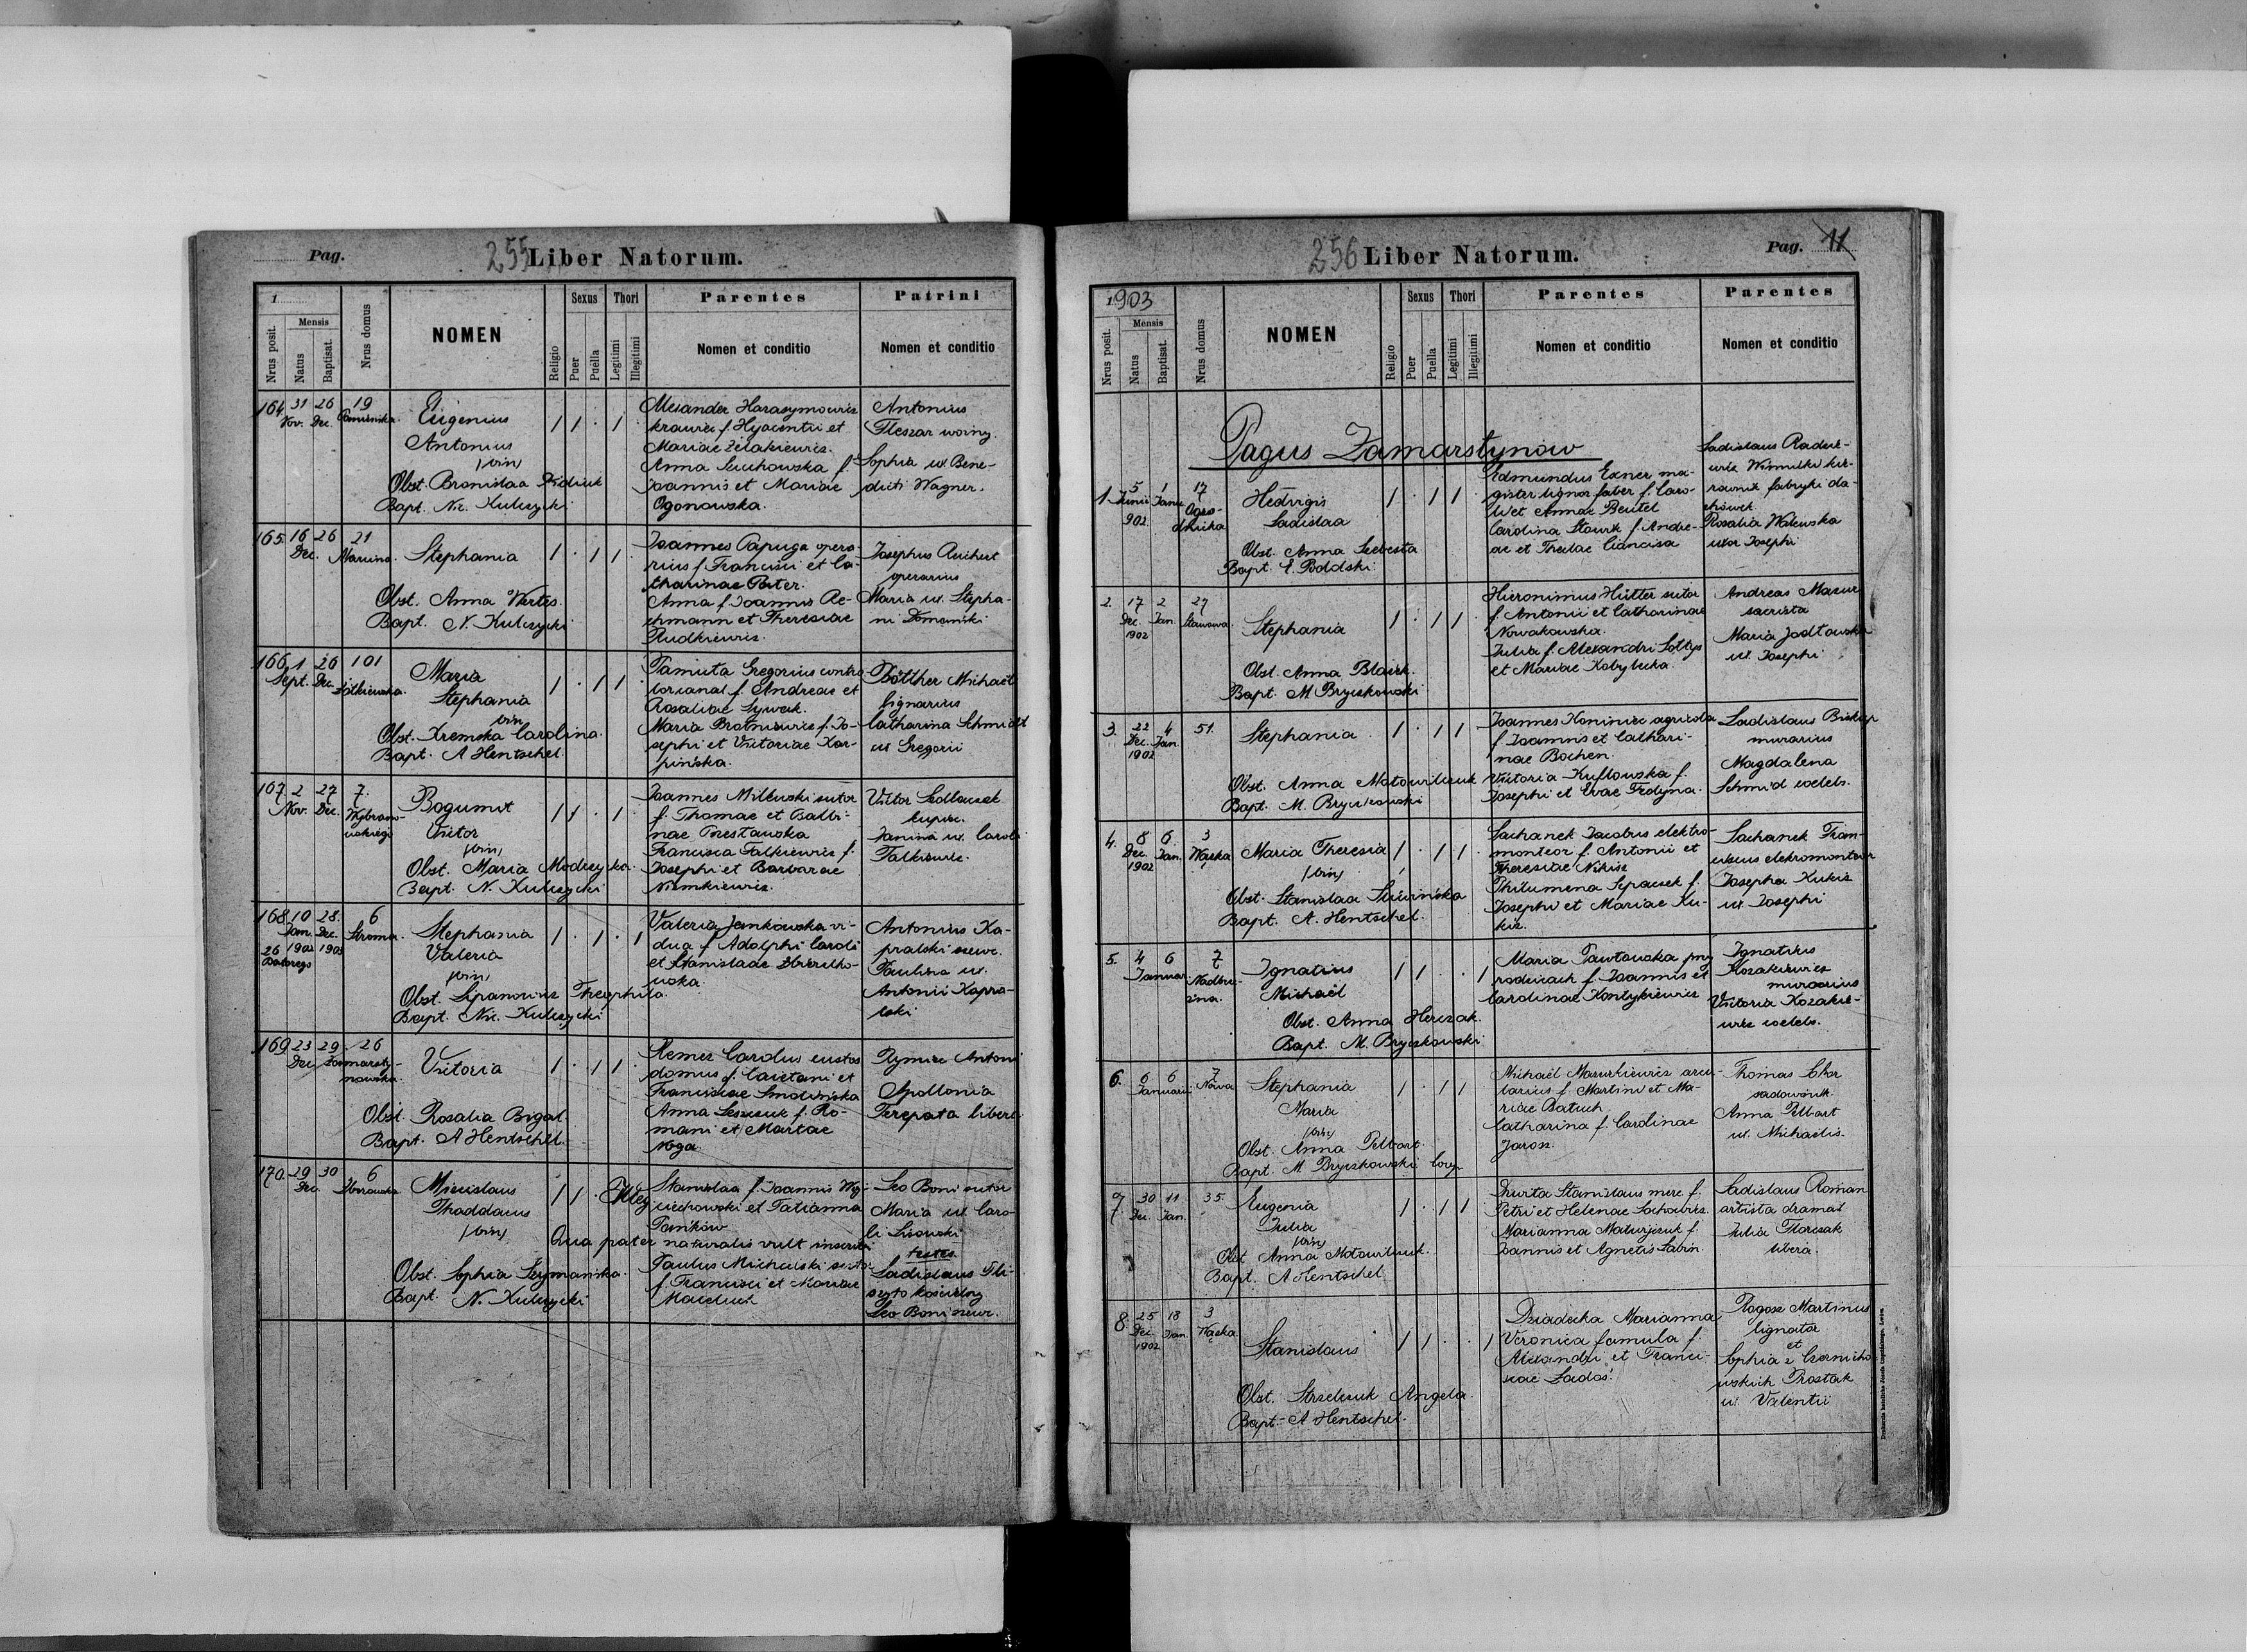 Pag.
255
Liber Natorum.
1
Nrus posit.
Mensis
Natus
Baptisat.
Nrus domus
NOMEN
Religio
Sexus
Puer
Puella
Thori
Legitimi
Illegitimi
Parentes
Nomen et conditio
Patrini
Nomen et conditio
164 31 Nov. 26 Dec. 19
Eugenius
Antonius
/bin/
Obst. Bronislaa
Bapt. Nic. Kulczycki
Alexander Harasymowicz
krawiec f. Hyacentii et
Mariae Żelakiewicz.
Anna Suchowska f.
Joannis et Mariae
Ogonowska.
Antonius
Fleszar woźny.
Sophia ux. Bene-
dicti Wagner.
165. 16 Dec. 26 21 Marcina.
Stephania
Obst. Anna Wertes.
Bapt. N. Kulczycki
Joannes Papuga opera-
rius f. Francisci et Ca-
tharinae Pater.
Anna f. Joannis Re-
chmann et Theresiae
Rudkiewicz.
Josephus Reichert
operarius
Maria ux. Stepha-
ni Domański
166. 1 Sept. 26 Dec. 101 Żółkiewska.
Maria
Stephania
bin
Obst. Kremska Carolina.
Bapt. A Hentschel.
Pamuta Gregorius
f. Andreae et
Rosaliae Sywak.
Maria Brotniewicz f. Jo-
sephi et Victoriae Kar-
pińska.
Bötther Michaël
lignarius
Catharina Schmidt
ux Gregorii
167. 2 Nov. 27 Dec. 7. Wybranowskiego
Bogumił
Victor
/bin/
Obst. Maria Modrzycka.
Bapt. N. Kulczycki
Joannes Milewski sutor
f. Thomae et Balbi-
nae Prestawska
Francisca Falkiewicz f.
Josephi et Barbarae
Niemkiewicz.
Victor Sedlaczek
kupiec.
Janina ux. Caroli
Falkiewicz.
168. 10 Jan. 1902 28. Dec. 1902 6 Stroma.
26 Batorego
Stephania
Valeria
/bin/
Obst. Lipanowicz Theophila.
Bapt. Nic. Kulczycki
Valeria Jankowska vi-
dua f. Adolphi Caroli
et Stanislaae
Antonius Ka-
pralski szewc.
Paulina ux.
Antonii Kapra-
lski
169. 23 Dec. 29. 26 Zamarstynowska.
Victoria
Obst. Rosalia Bigal.
Bapt. A Hentschel.
Kemez Carolus custos
domus f. Caietani et
Franciscae Smolińska
Anna Leszczuk f. Ro-
mani et Martae
Noga.
Rymiec Antoni
Apollonia
Perepata libera.
170. 29 Dec. 30 6 Zborowska
Miecislaus
Thaddaeus
/bin/
Illeg
Obst. Sophia Szymańska.
Bapt. N. Kulczycki
Stanislaa f. Joannis
et Tatianna
Paników
Qua pater naturalis vult inscribi
Paulus Michalski sutor
f. Francisci et Mariae
Maciuch
Leo Boni sutor
Maria ux Caro-
li Lisowski
testes
Ladislaus Fli-
szyto kościelny
Leo Boni szewc.
256
Liber Natorum.
Pag. 11
1903
Nrus posit.
Mensis
Natus
Baptisat.
Nrus domus
NOMEN
Religio
Sexus
Puer
Puella
Thori
Legitimi
Illegitimi
Parentes
Nomen et conditio
Parentes
Nomen et conditio
Pagus Zamarstynów
1. 5 Junii 902. 1 Janu 17 Ogro-
dnicka
Hedvigis
Ladislaa
Obst. Anna Szebesta
Bapt. E. Poddski.
Edmundus Exner ma-
gister lignor faber f. Caro-
li et Annae Beutel
Carolina Stawik f. Andre-
ae et Theclae Ciancisa
Ladislaus Radkie-
wicz kie-
rownik fabryki da-
chówek
Rosalia Walewska
uxor Josephi
2. 17 Dec. 1902 2 Jan. 27 Stawowa.
Stephania
Obst. Anna Błazek.
Bapt. M. Bryczkowski
Hieronimus Hütter sutor
f. Antonii et Catharinae
Nowakowska.
Julia f. Alexandri Sołtys
et Mariae Kobylecka.
Andreas Mazur
sacrista
Maria Jodłowska
ux. Josephi
3. 22 Dec. 1902 4 Jan. 51.
Stephania
Obst. Anna Motowilczuk
Bapt. M. Bryczkowski
Joannes Koniniec agricola
f. Joannis et Cathari-
nae Bochen.
Victoria Kuflowska f.
Josephi et Evae Fedyna.
Ladislaus Biskup
murarius
Magdalena
Schmid coeleb.
4. 8 Dec. 1902 6. Jan. 3 Wąska
Maria Theresia
/bin/
Obst. Stanislaa Śliwińska
Bapt. A. Hentschel.
Sachanek Jacobus elektro-
monteor f. Antonii et
Theresiae Nikisz
Philumena Sepaczek f.
Josephi et Mariae Ku-
kiz.
Sachanek Fran-
ciscus elekromonteor
Josepha Kukiz
ux. Josephi
5. 4 Januar. 6 7
Ignatius
Michaël
Obst. Anna Herczak.
Bapt. M. Bryczkowski
Maria Pawłowska przy
rodzicach f. Joannis et
Carolinae Kontykiewicz
Ignatius
Kozakiewicz
murarius
Victoria Kozakie-
wicz coeleb.
6. 6 Januarii 6 7 Nowa
Stephania
Maria
/bin/
Obst. Anna Pelbart.
Bapt. M. Bryczkowski Coop
Michaël Mazurkiewicz arcu-
larius f. Martini et Ma-
riae Batuch
Catharina f. Carolinae
Jarosz.
Thomas Chor
sadownik.
Anna Pelbart
ux. Michaëlis.
7. 30 Dec. 11 Jan. 35.
Eugenia
Julia
/bin/
Obst Anna Motowilczuk.
Bapt. A Hentschel
Dzurta Stanislaus merc f.
Petri et Helenae Sachowicz.
Marianna Maturjczuk f.
Joannis et Agnetis Labin.
Ladislaus Roman
artista dramat
Julia Florczak
libera.
8. 25 Dec. 1902 18 Jan. 3 Wąska
Stanislaus
Obst. Strzelczuk Angela.
Bapt. A Hentschel.
Dziadecka Marianna
Veronica famula f.
Alexandri et Franci-
scae Zadoś.
Rogosz Martinus
lignator
et
Sophia z Czernicho
wskich Prostak
ux. Valentii